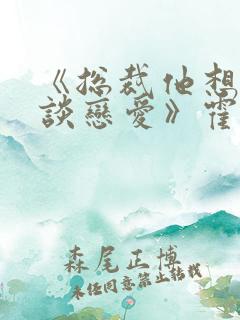 《总裁他想
談戀愛》霍
森尾正博
未经同意禁止转载